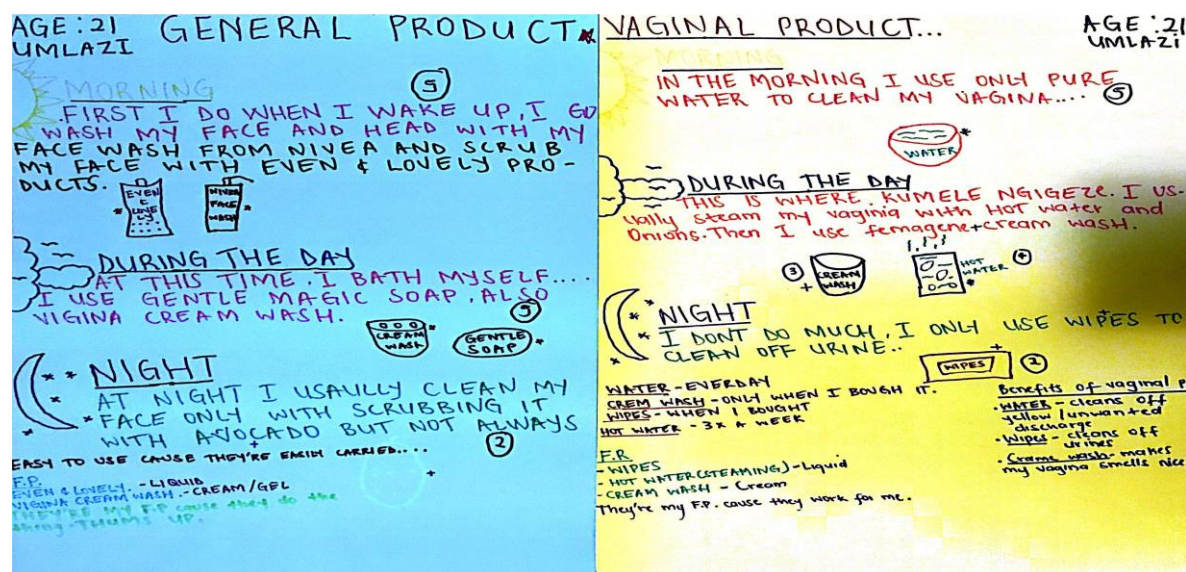 AGE: 21
UMLAZI
GENERAL PRODUCT
MORNING
5
.FIRST I DO WHEN I WAKE UP, I GO
WASH MY FACE AND HEAD WITH MY
FACE WASH FROM NIVEA AND SCRUB
MY FACE WITH EVEN & LOVELY PRO-
DUCTS.
EVEN
&
LOVE
LY
NIVEA
FACE
WASH
DURING THE DAY
AT THIS TIME, I BATH MYSELF....
I USE GENTLE MAGIC SOAP, ALSO
VIGINA CREAM WASH.
5
CREAM
WASH
GENTLE
SOAP
NIGHT
AT NIGHT I USAULLY CLEAN MY
FACE ONLY WITH SCRUBBING IT
WITH AVOCADO BUT NOT ALWAYS
2
EASY TO USE CAUSE THEY'RE EASIH CARRIED....
F.P.
EVEN & LOVELY. - LIQUID
VIGINA CREAM WASH. - CREAM/GEL
THEY'RE MY F.P cause they do the
thing - THUMS UP.
VAGINAL PRODUCT...
AGE: 21
UMLAZI
MORNING
IN THE MORNING I USE ONLY PURE
WATER TO CLEAN MY VAGINA....
5
WATER
DURING THE DAY
THIS IS WHERE. KUMELE NGIGEZE. I US-
ually steam my vaginia with HOT water and
Onions. Then I use femagene+cream wash.
3
CREAM
WASH
HOT
WATER
NIGHT
I DONT DO MUCH, I ONLY USE WIPES TO
CLEAN OFF URINE..
WIPES
2
WATER - EVERDAY
CREM WASH - ONLY WHEN I BOUGH IT.
WIPES - WHEN I BOUGHT
HOT WATER - 3X A WEEK
F.R
- WIPES
- HOT WATER(STEAMING) - Liquid
- CREAM WASH - Cream
They're my F.P. cause they work for me.
Benefits of vaginal P
. WATER - cleans off
yellow/unwanted
discharge
. Wipes - cleans off
urines
. Crams wash - makes
my vagina smells nice